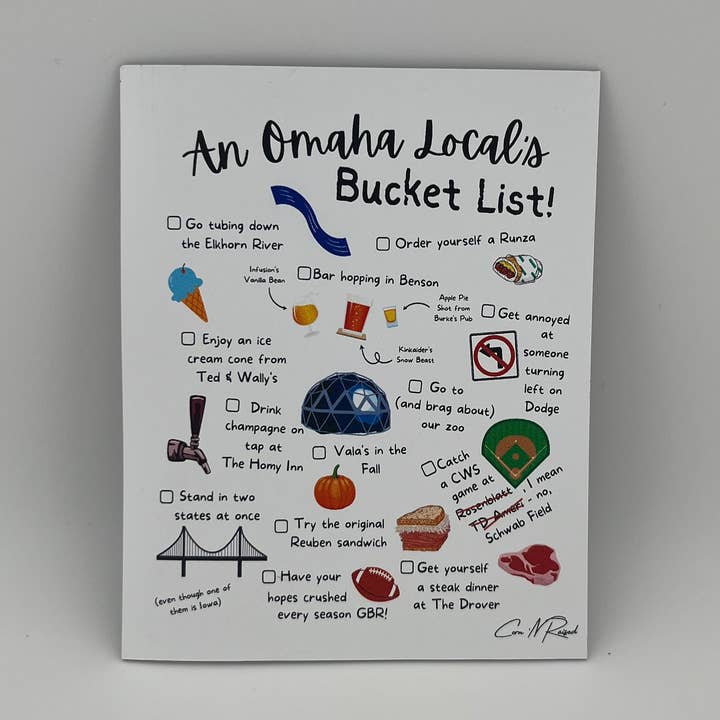 An Omaha Local's
Bucket List!
Go tubing down
the Elkhorn River
Order yourself a Runza
Infusion's
Vanilla Bean
Bar hopping in Benson
Apple Pie
Shot from
Burke's Pub
Kinkaider's
Snow Beast
Get annoyed
at
someone
turning
left on
Dodge
Enjoy an ice
cream cone from
Ted & Wally's
Go to
(and brag about)
our zoo
Drink
champagne on
tap at
The Homy Inn
Vala's in the
Fall
Catch
a CWS
game at
Rosenblatt, I mean
TD Ameri - no,
Schwab Field
Stand in two
states at once
(even though one of
them is Iowa)
Try the original
Reuben sandwich
Have your
hopes crushed
every season GBR!
Get yourself
a steak dinner
at The Drover
Corn 'N Raised